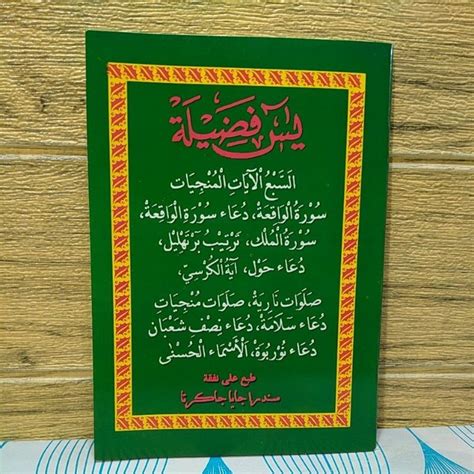 يٰسٓ فَضِيْلَة
السَّبْعُ الْآيَاتِ الْمُنْجِيَات
سُوْرَةُ الْوَاقِعَة، دُعَاء سُوْرَةِ الْوَاقِعَة،
سُوْرَةُ الْمُلْك، تَرْتِيْبُ بَرْتَهْلِيْل،
دُعَاء حَوْل، آيَةُ الْكُرْسِيّ،
صَلَوَات نَارِيَة، صَلَوَات مُنْجِيَات
دُعَاء سَلَامَة، دُعَاء نِصْف شَعْبَان
دُعَاء نُوْرْبُوَة، الْأَسْمَاء الْحُسْنٰى
طبع على نفقة
سندرا جايا جاكرتا